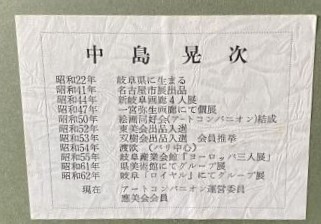 中島晃次
昭和22年 岐阜県に生まる
昭和41年 名古屋市展出品
昭和44年 新岐阜画廊4人展
昭和47年 一宮弥生画廊にて個展
昭和50年 絵画同好会(アートコンパニオン)結成
昭和52年 東美会出品入選
昭和53年 双樹会出品入選 会員推挙
昭和54年 渡欧(パリ中心)
昭和55年 岐阜産業会館『ヨーロッパ三人展』
昭和61年 県美術館にてグループ展
昭和62年 岐阜「ロイヤル」にてグループ展
現在 アートコンパニオン運営委員
應美会会員